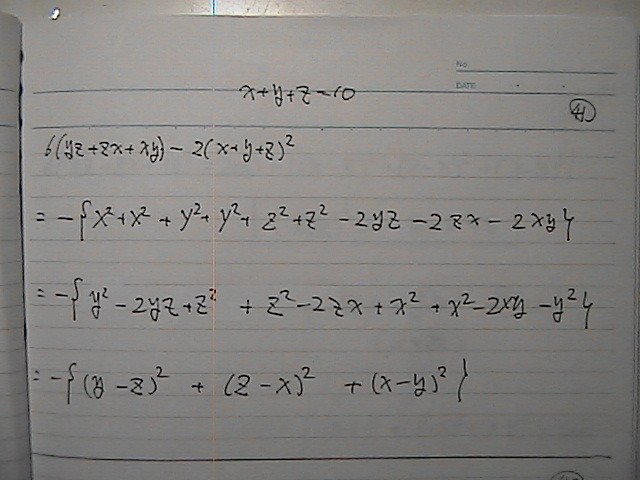 No.
DATE
x+y+z=10
41
6(yz+zx+xy)-2(x+y+z)²
=-{x²+x²+y²+y²+z²+z²-2yz-2zx-2xy}
=-{y²-2yz+z²+z²-2zx+x²+x²-2xy-y²}
=-{(y-z)²+(z-x)²+(x-y)²}